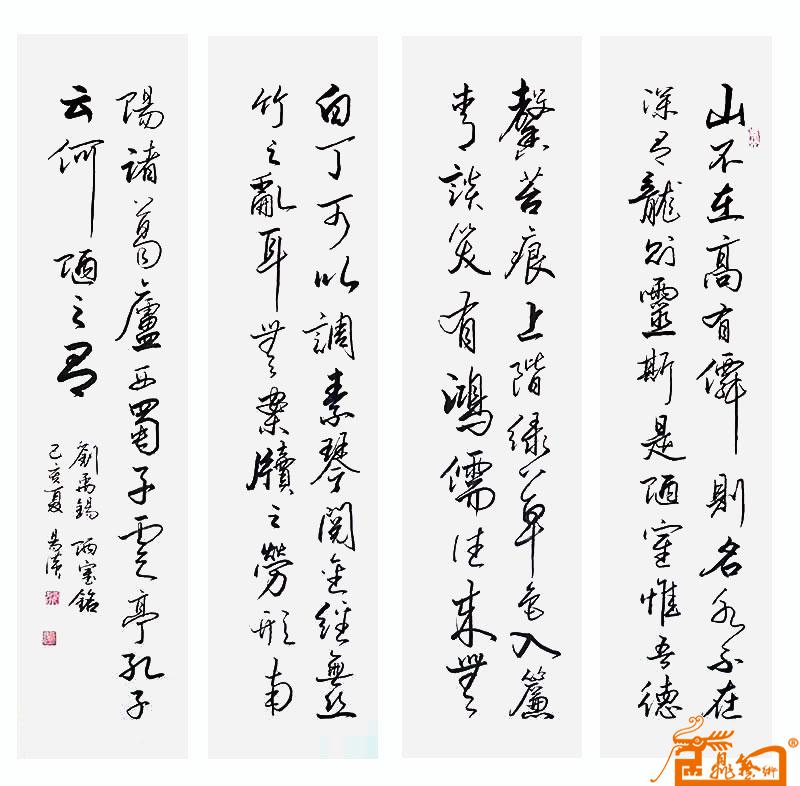 山不在高有僊則名水不在
深有龍則靈斯是陋室惟吾德
馨苔痕上階綠草色入簾
青談笑有鴻儒往來無
白丁可以調素琴閱金經無絲
竹之亂耳無案牘之勞形南
陽諸葛廬西蜀子雲亭孔子
云何陋之有
劉禹錫陋室銘
己亥夏